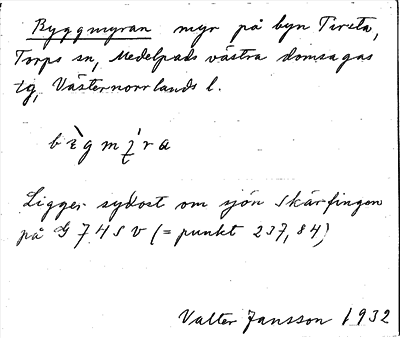 Byggmyran myr på byn Tirsta,
Torps sn, Medelpads västra domsagas
tg, Västernorrlands l.
Ligger sydost om sjön Skärfingen
på G 7 4 S V (= punkt 237,84)
Valter Jansson 1932